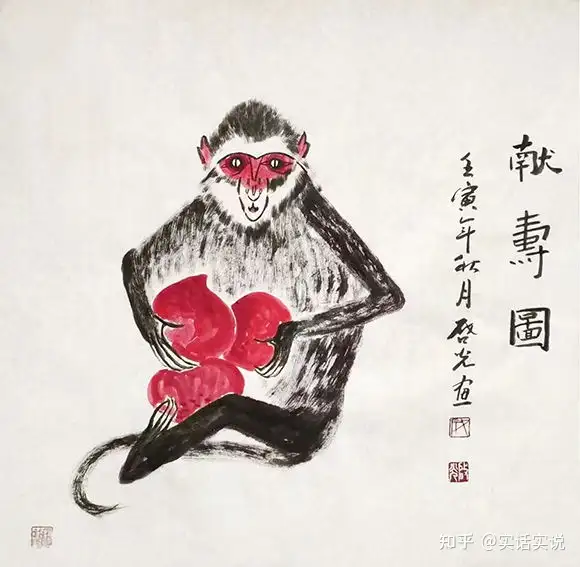 献壽圖
壬寅年秋月啓光画
知乎 @实话实说